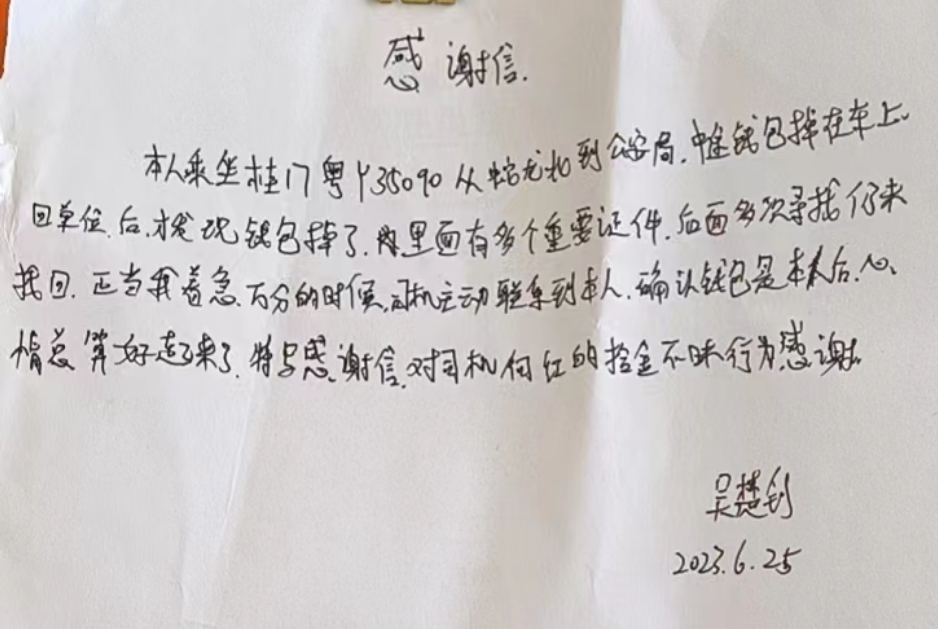 感谢信.
本人乘坐桂17粤Y35090从 到公安局.中途钱包掉在车上.
回单位后,才发现钱包掉了.内里面有多个重要证件.后面多次寻找仍未
找回.正当我着急万分的时候,司机主动联系到本人.确认钱包是本人后.心
情总算好起来了.特写感谢信.对司机何红的拾金不昧行为感谢.
吴楚钊
2023.6.25